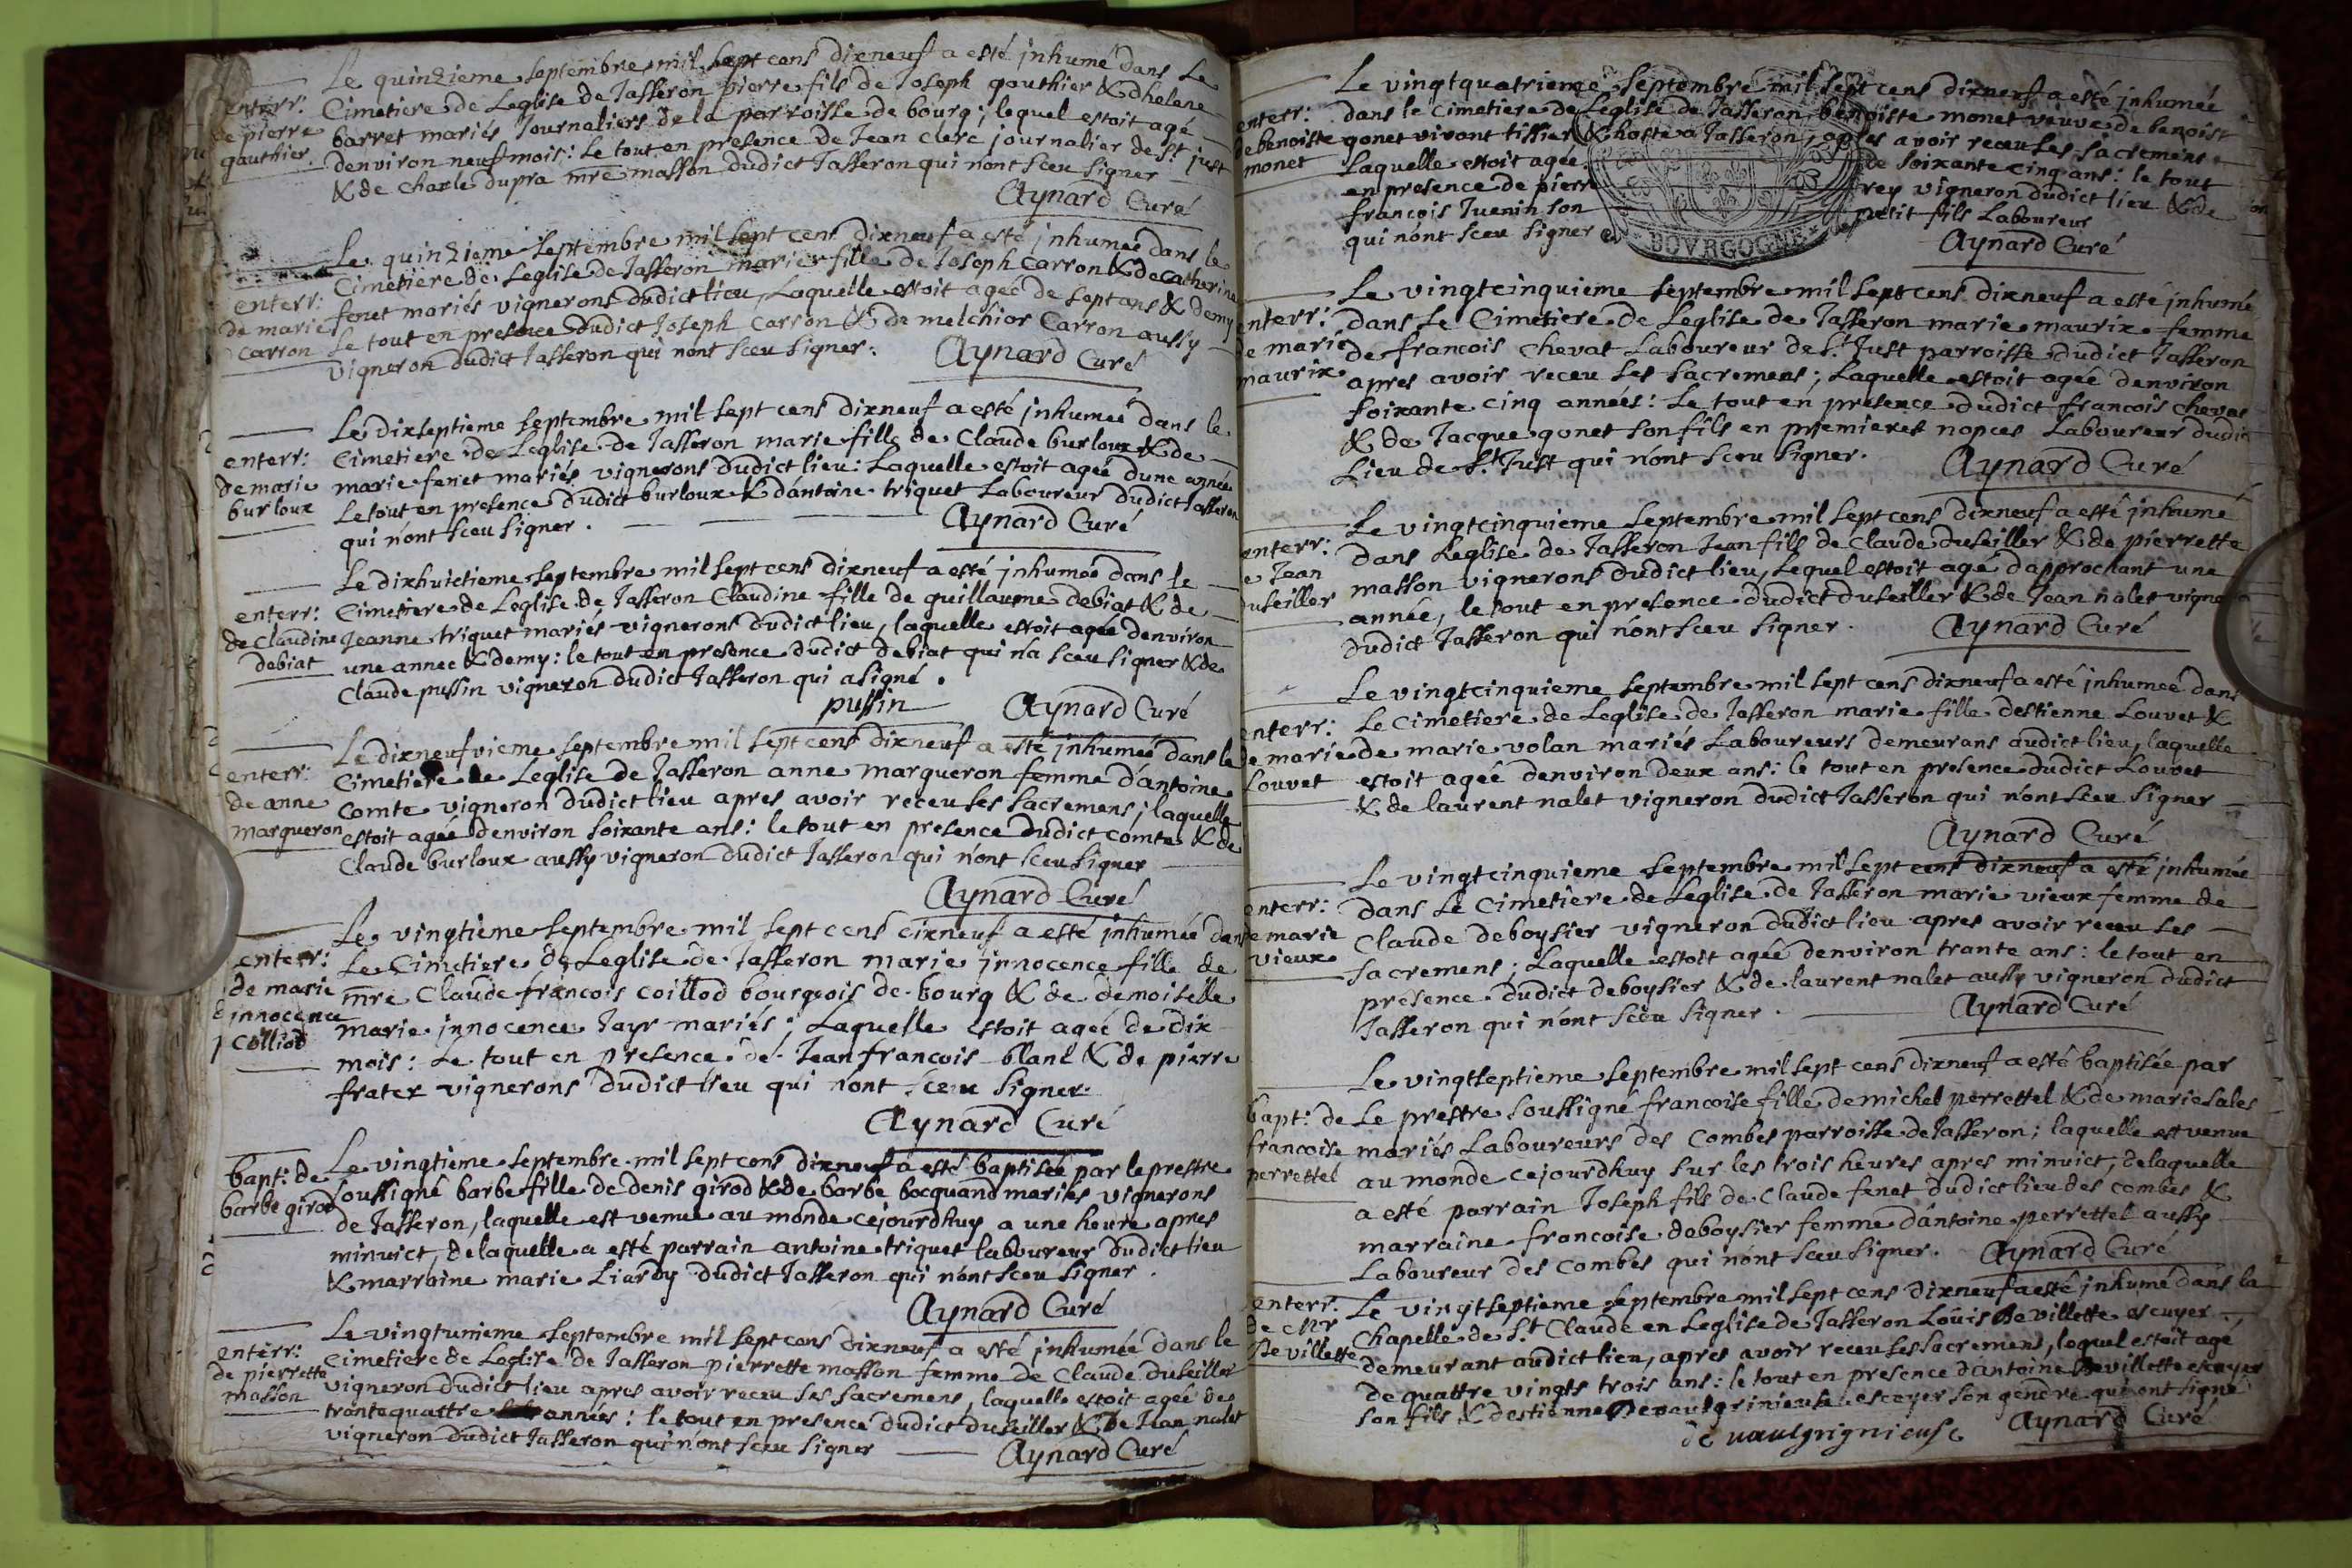 Le quinzieme septembre mil sept cens dixneuf a esté jnhumé dans Le
enterr: Cimetiere de Leglise de Jasseron pierre fils de Joseph gauthier & dhelene
de pierre barret mariés Journaliers de la parroisse de bourg; lequel estoit agé
gauthier. denviron neuf mois: Le tout en presence de Jean Clerc journalier de St. just
& de Charle dupra mre masson dudict Jasseron qui nont sceu signer
Aynard Curé
Le quinzieme septembre mil sept cens dixneuf a esté jnhumeé dans le
Cimetiere de Leglise de Jasseron marie fille de Joseph Carron & de Catherine
enterr: fenet mariés vignerons dudict lieu, Laquelle estoit agée de sept ans & demy
de marie Le tout en presence dudict Joseph Carron & de melchior Carron aussy
Carron vigneron dudict Jasseron qui nont sceu signer: Aynard Curé
Le dixseptieme septembre mil sept cens dixneuf a esté jnhumeé dans le
enterr: Cimetiere de Leglise de Jasseron marie fille de Claude burloux & de
de marie marie fenet mariés vignerons dudict lieu: Laquelle estoit agée dune année
burloux Le tout en presence dudict burloux & dantoine triquet Laboureur dudict Jasseron
qui nont sceu signer. Aynard Curé
Le dixhuictieme septembre mil sept cens dixneuf a esté jnhumeé dans le
enterr: Cimetiere de Leglise de Jasseron Claudine fille de guillaume debiat & de
de Claudine Jeanne triquet mariés vignerons dudict lieu, laquelle estoit agée denviron
debiat une annee & demy: le tout en presence dudict debiat qui na sceu signer & de
Claude pussin vigneron dudict Jasseron qui a signé.
pussin Aynard Curé
Le dixneufvieme septembre mil sept cens dixneuf a esté jnhumeé dans le
enterr: Cimetiere de Leglise de Jasseron anne marqueron femme dantoine
de anne Comte vigneron dudict lieu apres avoir receu ses sacremens; laquelle
marqueron estoit agée denviron soixante ans: le tout en presence dudict comte & de
Claude burloux aussy vigneron dudict Jasseron qui nont sceu signer
Aynard Curé
Le vingtieme septembre mil sept cens dixneuf a esté jnhumeé dans
enterr: Le Cimetiere de Leglise de Jasseron marie jnnocence fille de
de marie mre Claude francois Coillod bourgeois de bourg & de demoiselle
jnnocence marie jnnocence Jayr mariés; Laquelle estoit agée de dix
Colliod mois: Le tout en presence de Jean francois blanc & de pierre
frater vignerons dudict lieu qui nont sceu signer.
Aynard Curé
bapt: de Le vingtieme septembre mil sept cens dixneuf a esté baptisée par le prestre
barbe girod soussigné barbe fille de denis girod & de barbe bocquand mariés vignerons
de Jasseron, laquelle est venue au monde cejourdhuy a une heure apres
minuict, de laquelle a esté parrain antoine triquet laboureur dudict lieu
& marraine marie Liardy dudict Jasseron qui nont sceu signer.
Aynard Curé
Le vingtunieme septembre mil sept cens dixneuf a esté jnhumeé dans le
enterr: Cimetiere de Leglise de Jasseron pierrette masson femme de Claude duseiller
de pierrette vigneron dudict lieu apres avoir receu ses sacremens, laquelle estoit agée de
masson trantequattre années: le tout en presence dudict duseiller & de Jean nalet
vigneron dudict Jasseron qui nont sceu signer Aynard Curé
Le vingtquatrieme septembre mil sept cens dixneuf a esté jnhumée
enterr: dans le Cimetiere de Leglise de Jasseron, benoiste monet veuve de benoist
de benoiste gonet vivant tissier & hoste a Jasseron, apres avoir receu ses sacremens
monet Laquelle estoit agée de soixante cinq ans: le tout
en presence de pierre rey vigneron dudict lieu & de
francois Juenin son petit fils Laboureur
qui nont sceu signer Aynard Curé
BOVRGOGNE
Le vingtcinquieme septembre mil sept cens dixneuf a esté jnhumé
enterr: dans Le Cimetiere de Leglise de Jasseron marie maurix femme
de marie de francois Chevat Laboureur de St. Just parroisse dudict Jasseron
maurix apres avoir receu ses sacremens; Laquelle estoit agée denviron
soixante cinq années: Le tout en presence dudict francois Chevat
& de Jacque gonet son fils en premieres nopces Laboureur dudict
Lieu de St. Just qui nont sceu signer. Aynard Curé
Le vingtcinquieme septembre mil sept cens dixneuf a esté jnhumé
enterr: dans Leglise de Jasseron Jean fils de Claude duseiller & de pierrette
de Jean masson vignerons dudict lieu, Lequel estoit agé dapprochant une
duseiller année, le tout en presence dudict duseiller & de Jean nalet vigneron
dudict Jasseron qui nont sceu signer. Aynard Curé
Le vingtcinquieme septembre mil sept cens dixneuf a esté jnhumeé dans
enterr: Le Cimetiere de Leglise de Jasseron marie fille destienne Louvet &
de marie de marie volan mariés Laboureurs demeurans audict lieu, laquelle
Louvet estoit agée denviron deux ans: le tout en presence dudict Louvet
& de laurent nalet vigneron dudict Jasseron qui nont sceu signer
Aynard Curé
Le vingtcinquieme septembre mil sept cens dixneuf a esté jnhumée
enterr: dans Le Cimetiere de Leglise de Jasseron marie vieux femme de
de marie Claude deboysier vigneron dudict lieu apres avoir receu ses
vieux sacremens; Laquelle estoit agée denviron trante ans: le tout en
presence dudict deboysier & de laurent nalet aussy vigneron dudict
Jasseron qui nont sceu signer. Aynard Curé
Le vingtseptieme septembre mil sept cens dixneuf a esté baptisée par
bapt: de Le prestre soussigné francoise fille de michel perrettel & de marie sales
francoise mariés Laboureurs des Combes parroisse de Jasseron; laquelle est venue
perrettel au monde cejourdhuy sur les trois heures apres minuict, de laquelle
a esté parrain Joseph fils de Claude fenet dudict lieu des combes &
marraine francoise deboysier femme dantoine perrettel aussy
Laboureur des Combes qui nont sceu signer. Aynard Curé
enterr. Le vingtseptieme septembre mil sept cens dixneuf a esté jnhumé dans la
de Mr Chapelle de St. Claude en Leglise de Jasseron Louis De villette escuyer
De villette demeurant audict lieu, apres avoir receu ses sacremens, lequel estoit agé
de quattre vingts trois ans: le tout en presence dantoine De villette escuyer
son fils & destienne De vaulgrinieuse escuyer son gendre qui ont signé
de vaulgrignieuse Aynard Curé